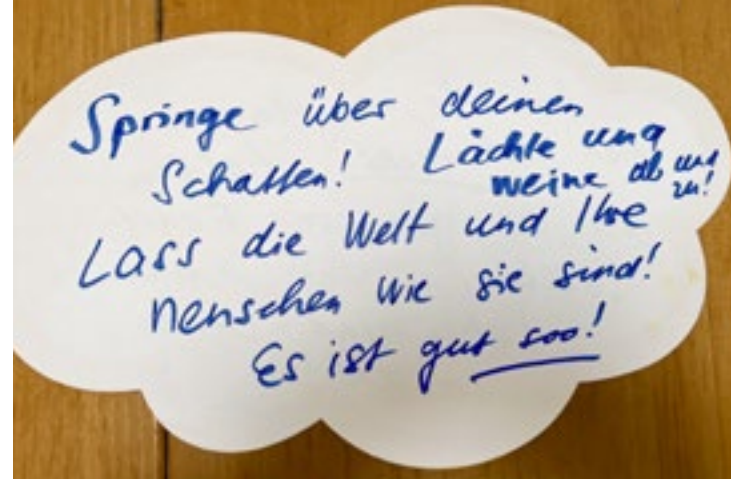 Springe über deinen
Schatten! Lächle und
weine ab und
zu!
Lass die Welt und Ihre
Menschen wie sie sind!
Es ist gut soo!